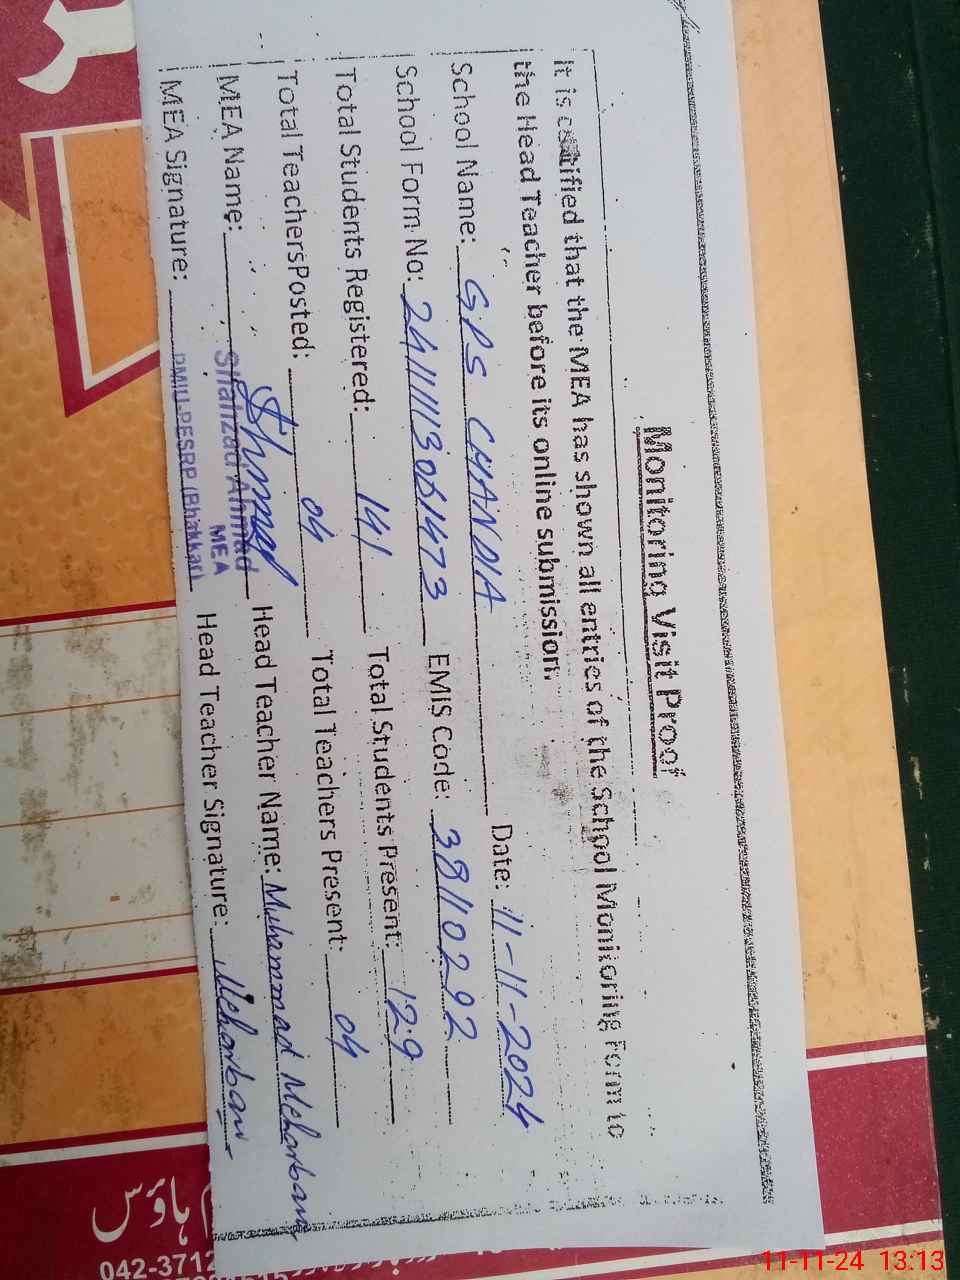 Monitoring Visit Proof
It is certified that the MEA has shown all entries of the School Monitoring Form to
the Head Teacher before its online submission.
School Name: GPS CHANDIA Date: 11-11-2024
School Form No: EMIS Code: 38110292
Total Students Registered: 141 Total Students Present: 129
Total TeachersPosted: 04 Total Teachers Present: 04
MEA Name: Shahzad Ahmad Head Teacher Name: Muhammad Meharban
MEA
MEA Signature: PMIU-PESRP (Bhakkar) Head Teacher Signature: Meharban
ہاؤس
042-3712
11-11-24 13:13